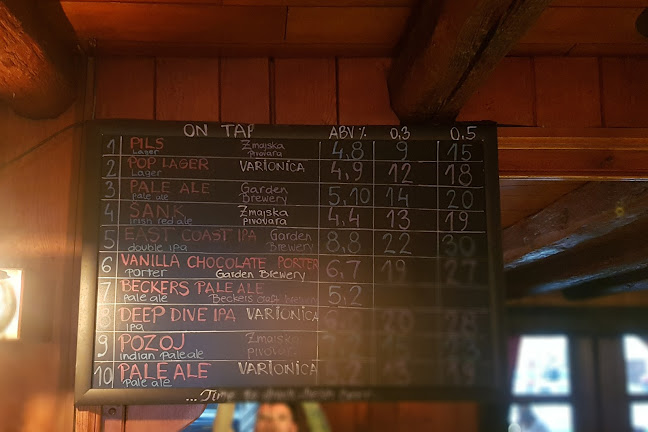 ON TAP ABV % 0,3 0,5
1 PILS Zmajska 4,8 9 15
Lager pivovara
2 POP LAGER VARIONICA 4,9 12 18
Lager
3 PALE ALE Garden 5,10 14 20
pale ale Brewery
4 ŠANK Zmajska 4,4 13 19
irish red ale pivovara
5 EAST COAST IPA Garden 8,8 22 30
double ipa Brewery
6 VANILLA CHOCOLATE PORTER 6,7 19 27
porter Garden Brewery
7 BECKERS PALE ALE 5,2
pale ale Beckers Craft
8 DEEP DIVE IPA VARIONICA 20 28
ipa
9 POZOJ Zmajska
indian pale ale pivovara
10 PALE ALE VARIONICA
pale ale
...Time to drink